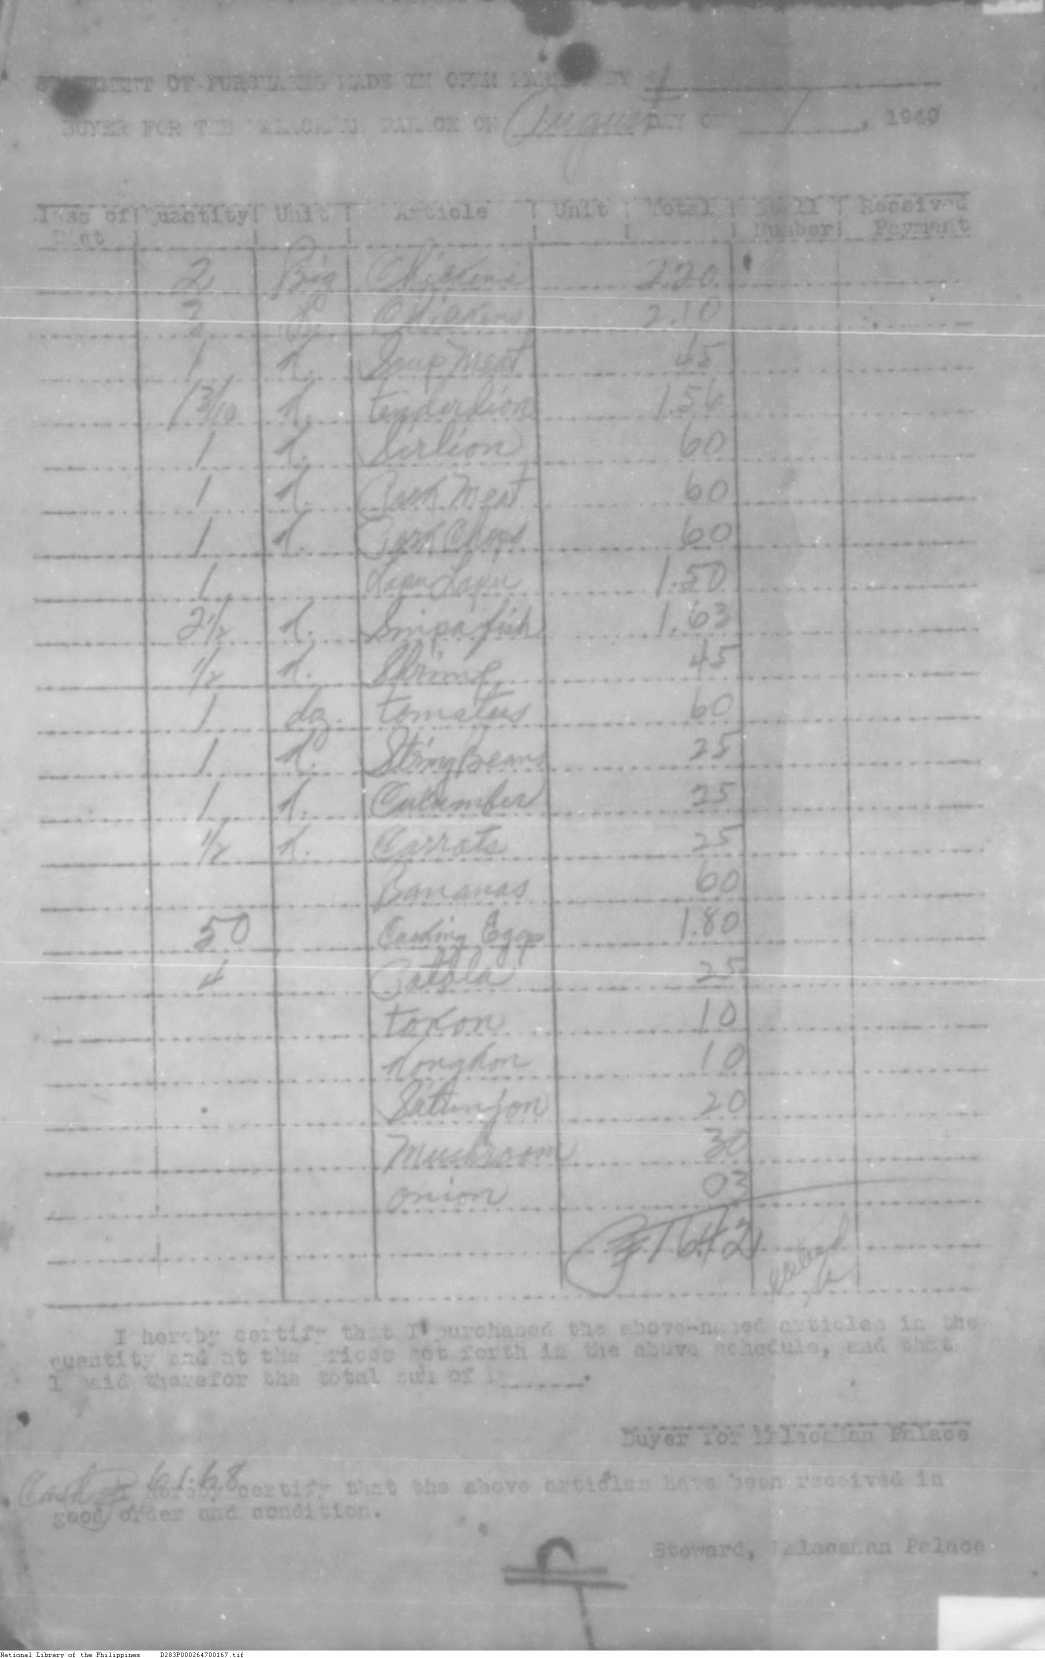 STATEMENT OF PURCHASES MADE IN OPEN MARKET BY
BUYER FOR THE MALACAÑAN PALACE ON August DAY OF 1, 1940
Class of Quantity Unit Article Unit Total Stall Received
Number Payment
2 Big Chickens 2.20
Chickens 2.10
1 k. Soup Meat 45
1 3/10 k. tenderlion 1.56
1 k. Sirlion 60
1 k. Pork Meat 60
1 k. Pork Chops 60
1 Lapu Lapu 1.50
2 1/2 k. Snipa fish 1.63
1/2 k. Shrimp 45
1 dz. tomatus 60
1 k. String Beans 25
1 k. Cucumber 25
1/2 k. Carrots 25
Bananas 60
50 Cooking Eggs 1.80
4 Patola 25
10
Kongkon 10
20
Mushroom 30
onion 03
₱ 16.42
I hereby certify that I purchased the above-named articles in the
quantity and at the prices set forth in the above schedule, and that
I paid therefor the total sum of ₱
Buyer for Malacañan Palace
Cash ₱ 61.68
I hereby certify that the above articles have been received in
good order and condition.
Steward, Malacañan Palace
National Library of the Philippines D283P000264700167.tif